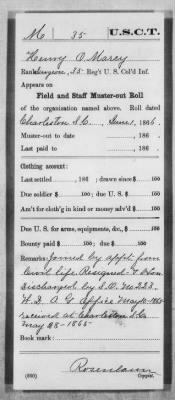 M | 35 | U.S.C.T.
Henry O. Marcy
Rank Surgeon, 35 Reg't U.S. Col'd Inf.
Appears on
Field and Staff Muster-out Roll
of the organization named above. Roll dated
Charleston S.C., June 1, 1866.
Muster-out to date , 186 .
Last paid to , 186 .
Clothing account:
Last settled , 186 ; drawn since $ 100
Due soldier $ 100; due U. S. $ 100
Am't for cloth'g in kind or money adv'd $ 100
Due U. S. for arms, equipments, &c., $ 100
Bounty paid $ 100; due $ 100
Remarks: Joined by appt. from
Civil life. Resigned & Hon.
discharged by S.O. No 223.
W.D. A.G. Office May 10 1865
received at Charleston S.C.
May 28-1865
Book mark:
Rosenbaum
(860) Copyist.